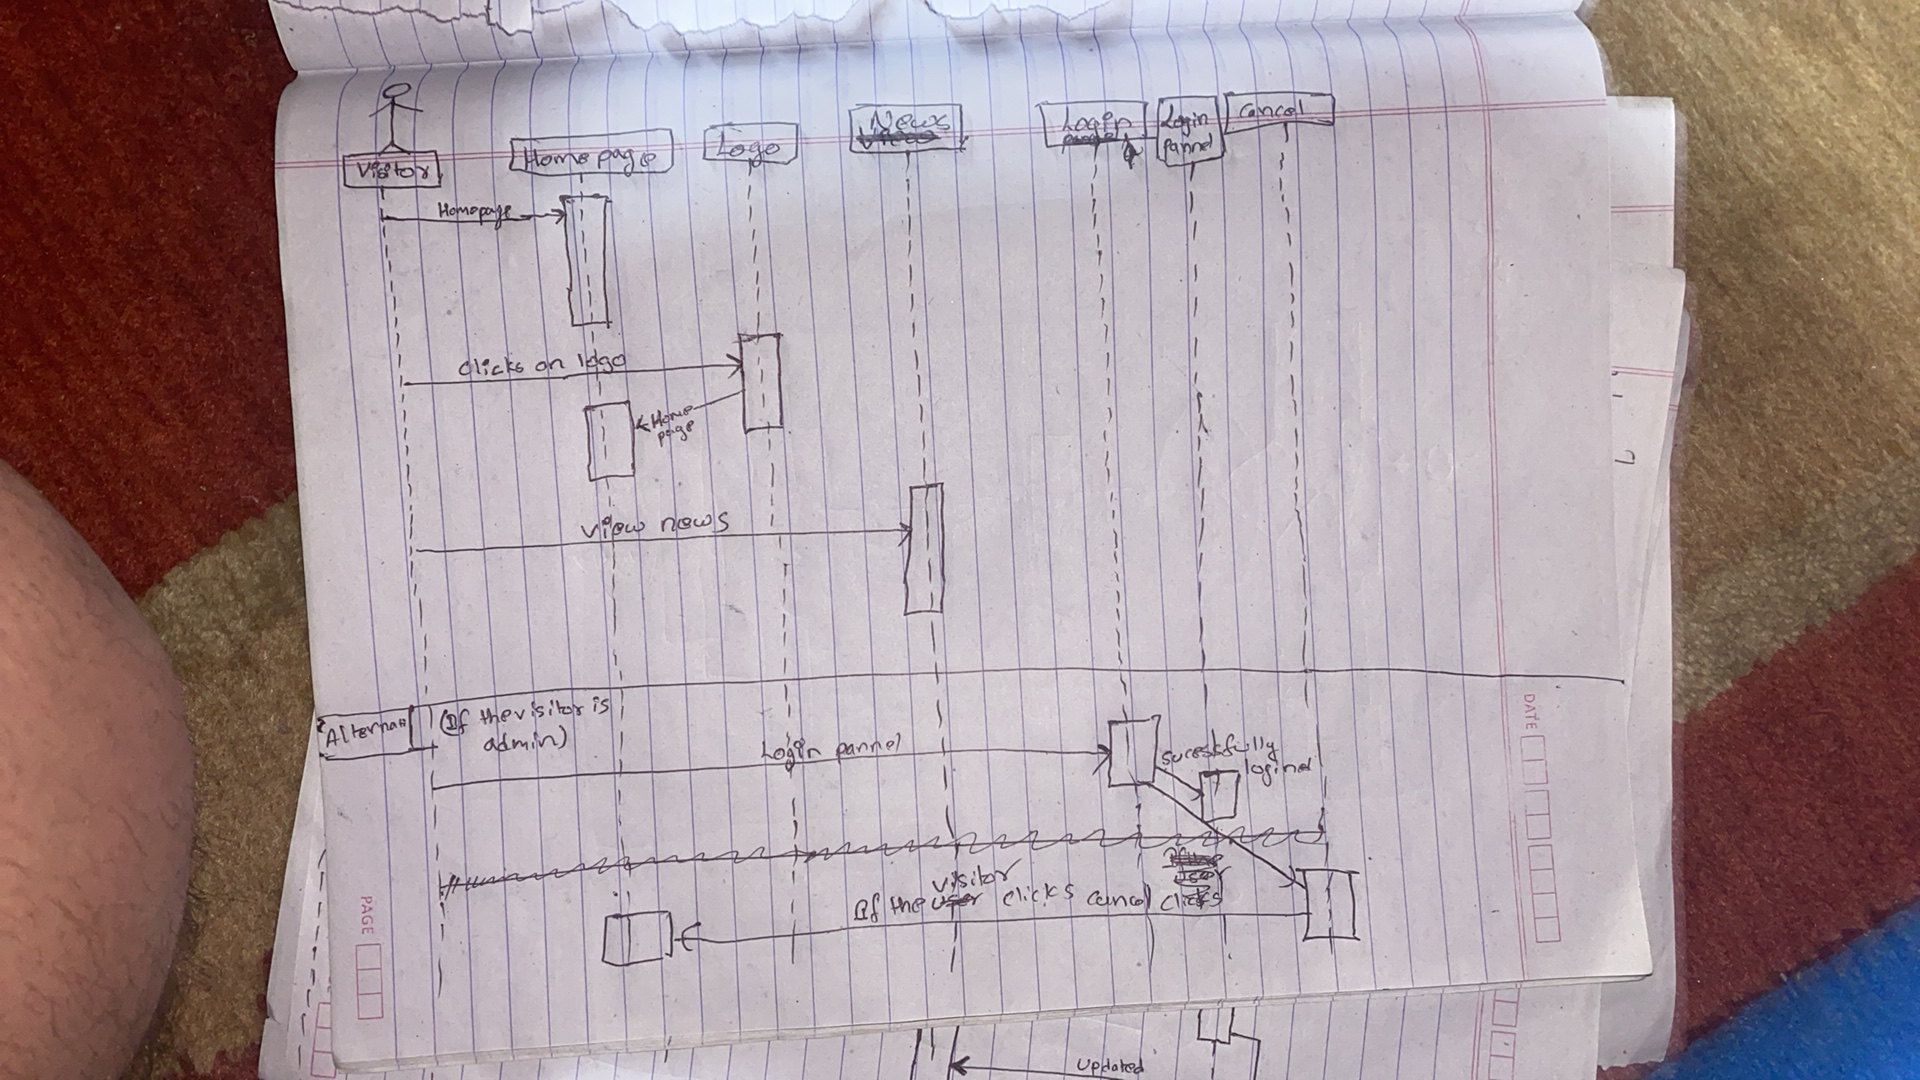 Visitor
Homepage
Logo
News
Login
Login
pannel
Cancel
Homepage
Clicks on logo
Home
page
View news
Alternat
(If the visitor is
admin)
Login pannel
Sucessfully
logined
visitor
If the user clicks cancel clicks
user
PAGE
DATE
Updated